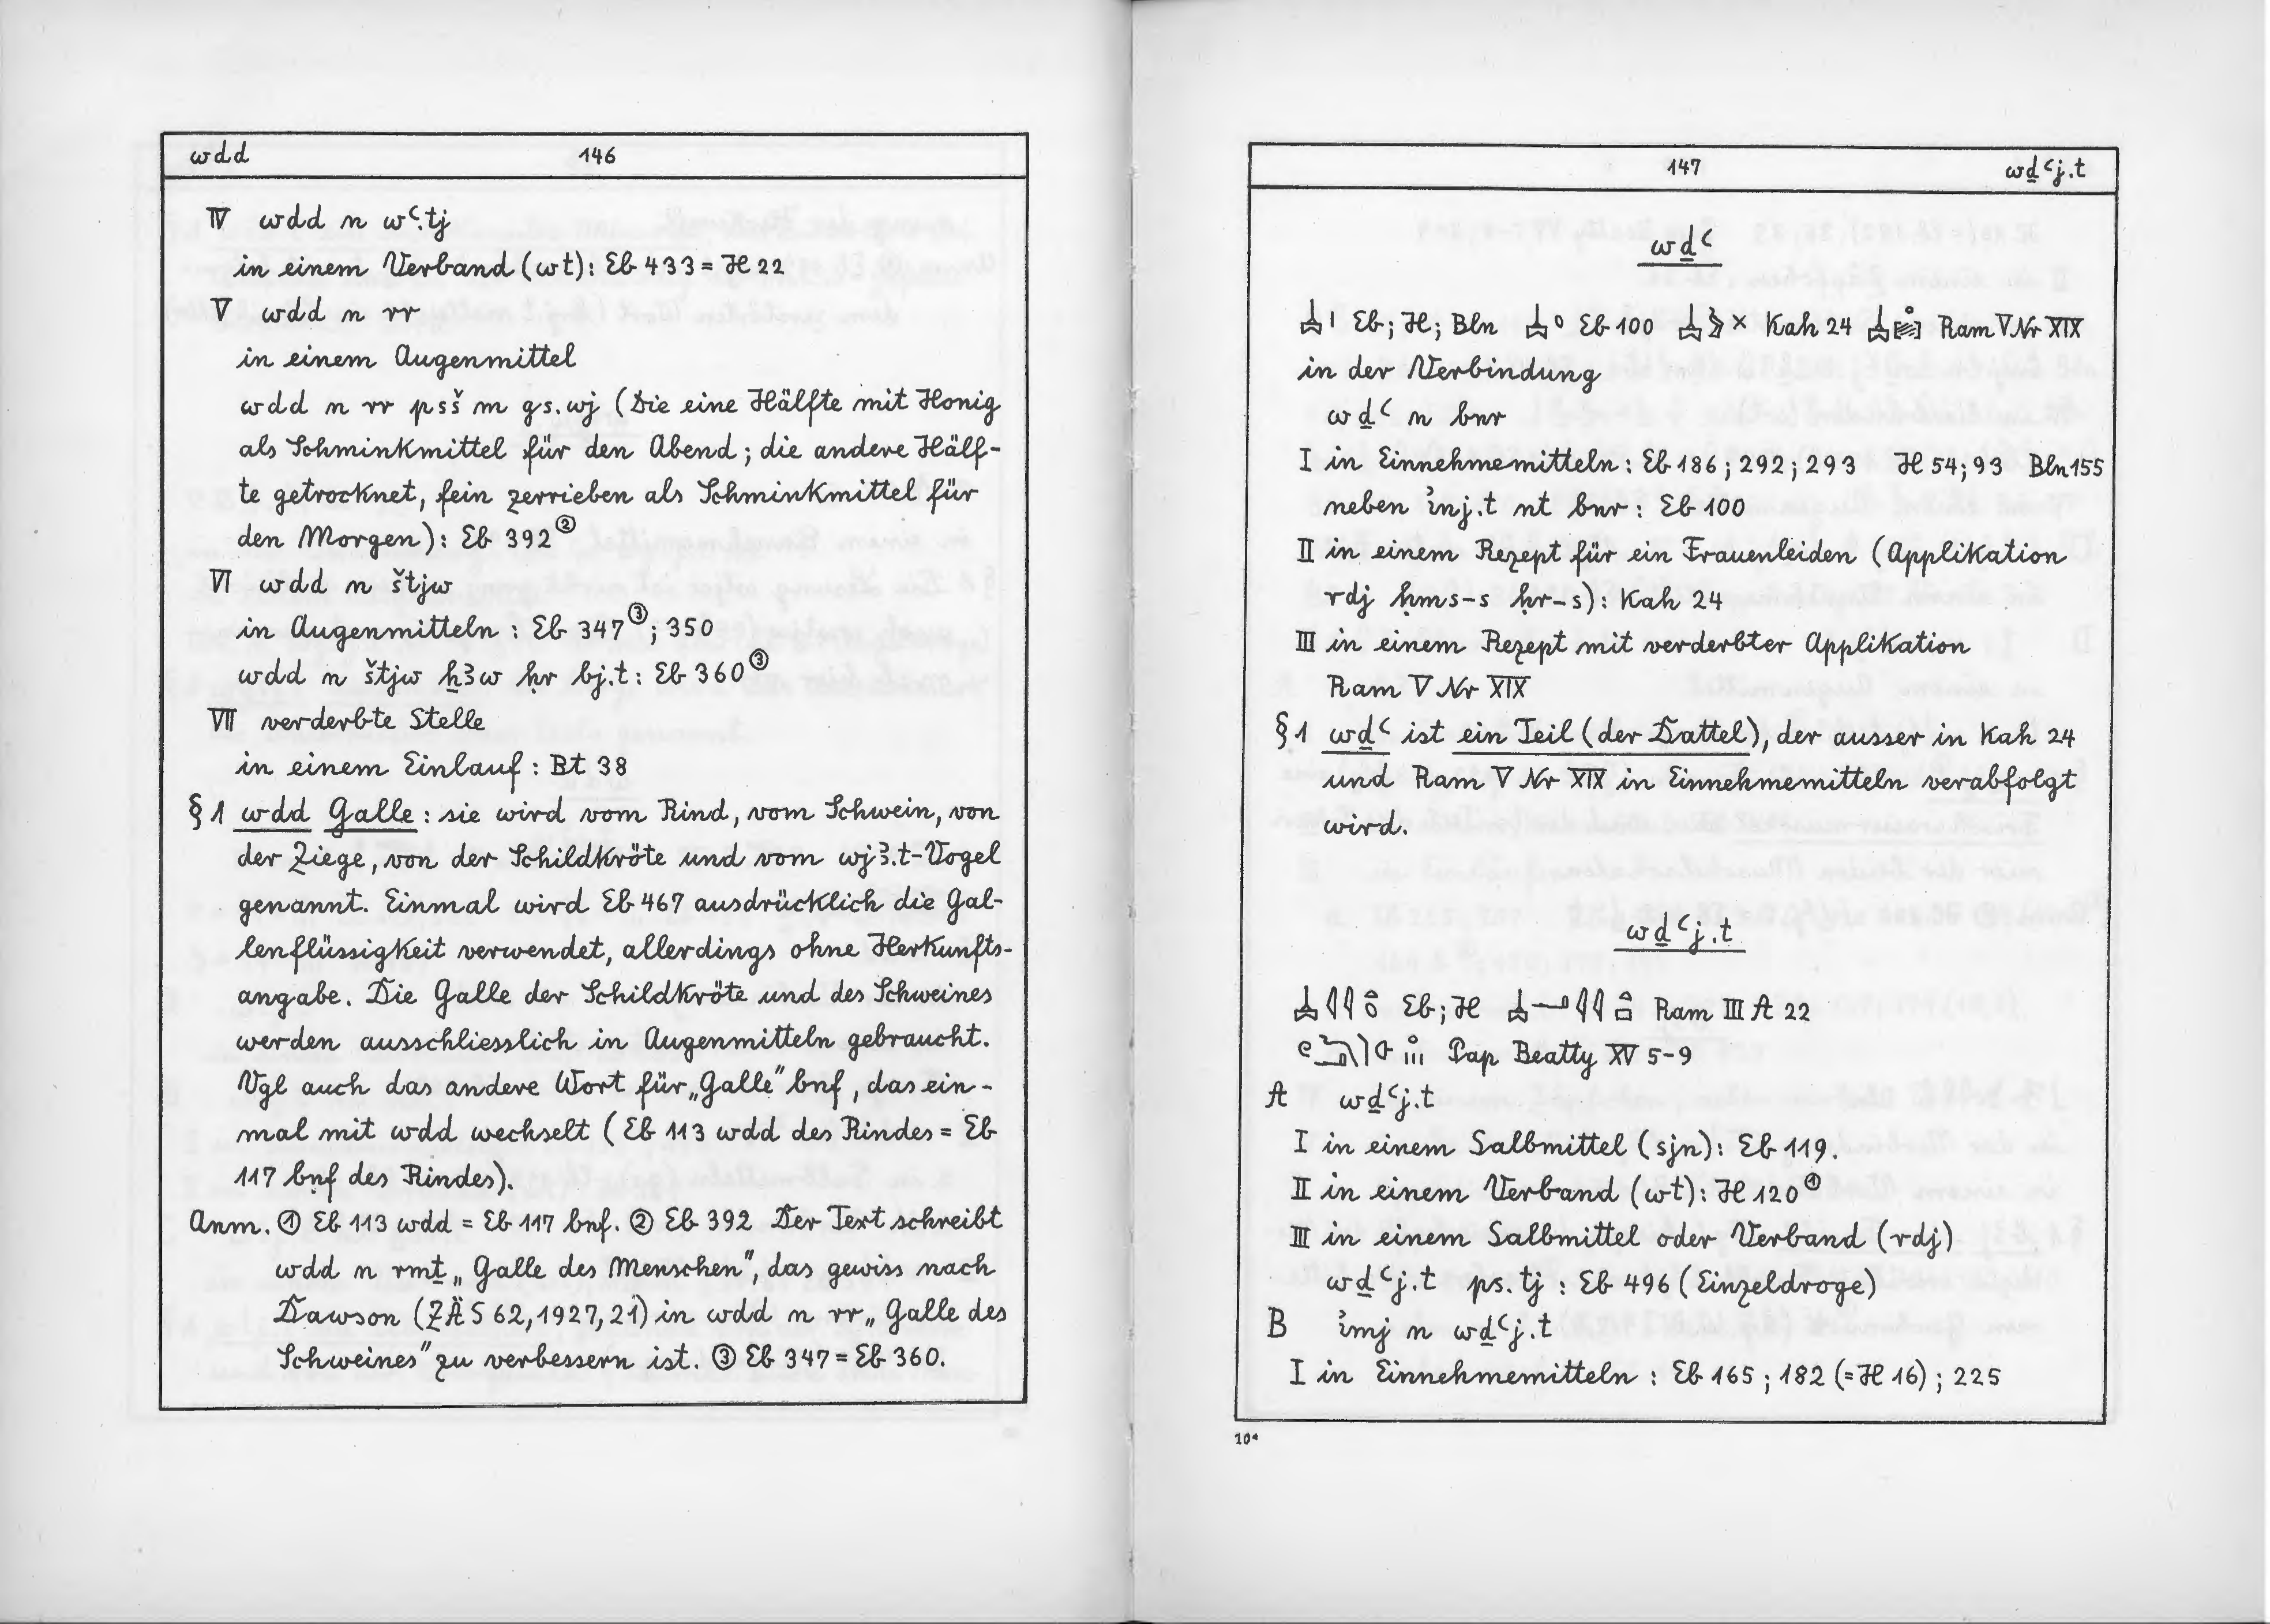 wdd 146
IV wdd n wꜥ.tj
in einem Verband (wt): Eb 433 = H 22
V wdd n rr
in einem Augenmittel
wdd n rr psš m gs.wj (Die eine Hälfte mit Honig
als Schminkmittel für den Abend; die andere Hälf-
te getrocknet, fein zerrieben als Schminkmittel für
den Morgen): Eb 392②
VI wdd n štjw
in Augenmitteln: Eb 347③; 350
wdd n štjw ẖꜣw ḥr bj.t: Eb 360③
VII verderbte Stelle
in einem Einlauf: Bt 38
§ 1 wdd Galle: sie wird vom Rind, vom Schwein, von
der Ziege, von der Schildkröte und vom wjꜣ.t-Vogel
genannt. Einmal wird Eb 467 ausdrücklich die Gal-
lenflüssigkeit verwendet, allerdings ohne Herkunfts-
angabe. Die Galle der Schildkröte und des Schweines
werden ausschliesslich in Augenmitteln gebraucht.
Vgl auch das andere Wort für „Galle" bnf, das ein-
mal mit wdd wechselt (Eb 113 wdd des Rindes = Eb
117 bnf des Rindes).
Anm. ① Eb 113 wdd = Eb 117 bnf. ② Eb 392 Der Text schreibt
wdd n rmṯ „Galle des Menschen", das gewiss nach
Dawson (ZÄS 62, 1927, 21) in wdd n rr „Galle des
Schweines" zu verbessern ist. ③ Eb 347 = Eb 360.
147 wḏꜥj.t
wḏꜥ
Eb; H; Bln Eb 100 Kah 24 Ram V Nr XIX
in der Verbindung
wḏꜥ n bnr
I in Einnehmemitteln: Eb 186; 292; 293 H 54; 93 Bln 155
neben ỉnj.t nt bnr: Eb 100
II in einem Rezept für ein Frauenleiden (Applikation
rdj ḥms-s ḥr-s): Kah 24
III in einem Rezept mit verderbter Applikation
Ram V Nr XIX
§ 1 wḏꜥ ist ein Teil (der Dattel), der ausser in Kah 24
und Ram V Nr XIX in Einnehmemitteln verabfolgt
wird.
wḏꜥj.t
Eb; H Ram III A 22
Pap Beatty XV 5-9
A wḏꜥj.t
I in einem Salbmittel (sjn): Eb 119.
II in einem Verband (wt): H 120①
III in einem Salbmittel oder Verband (rdj)
wḏꜥj.t ps.tj: Eb 496 (Einzeldroge)
B ỉmj n wḏꜥj.t
I in Einnehmemitteln: Eb 165; 182 (= H 16); 225
10*